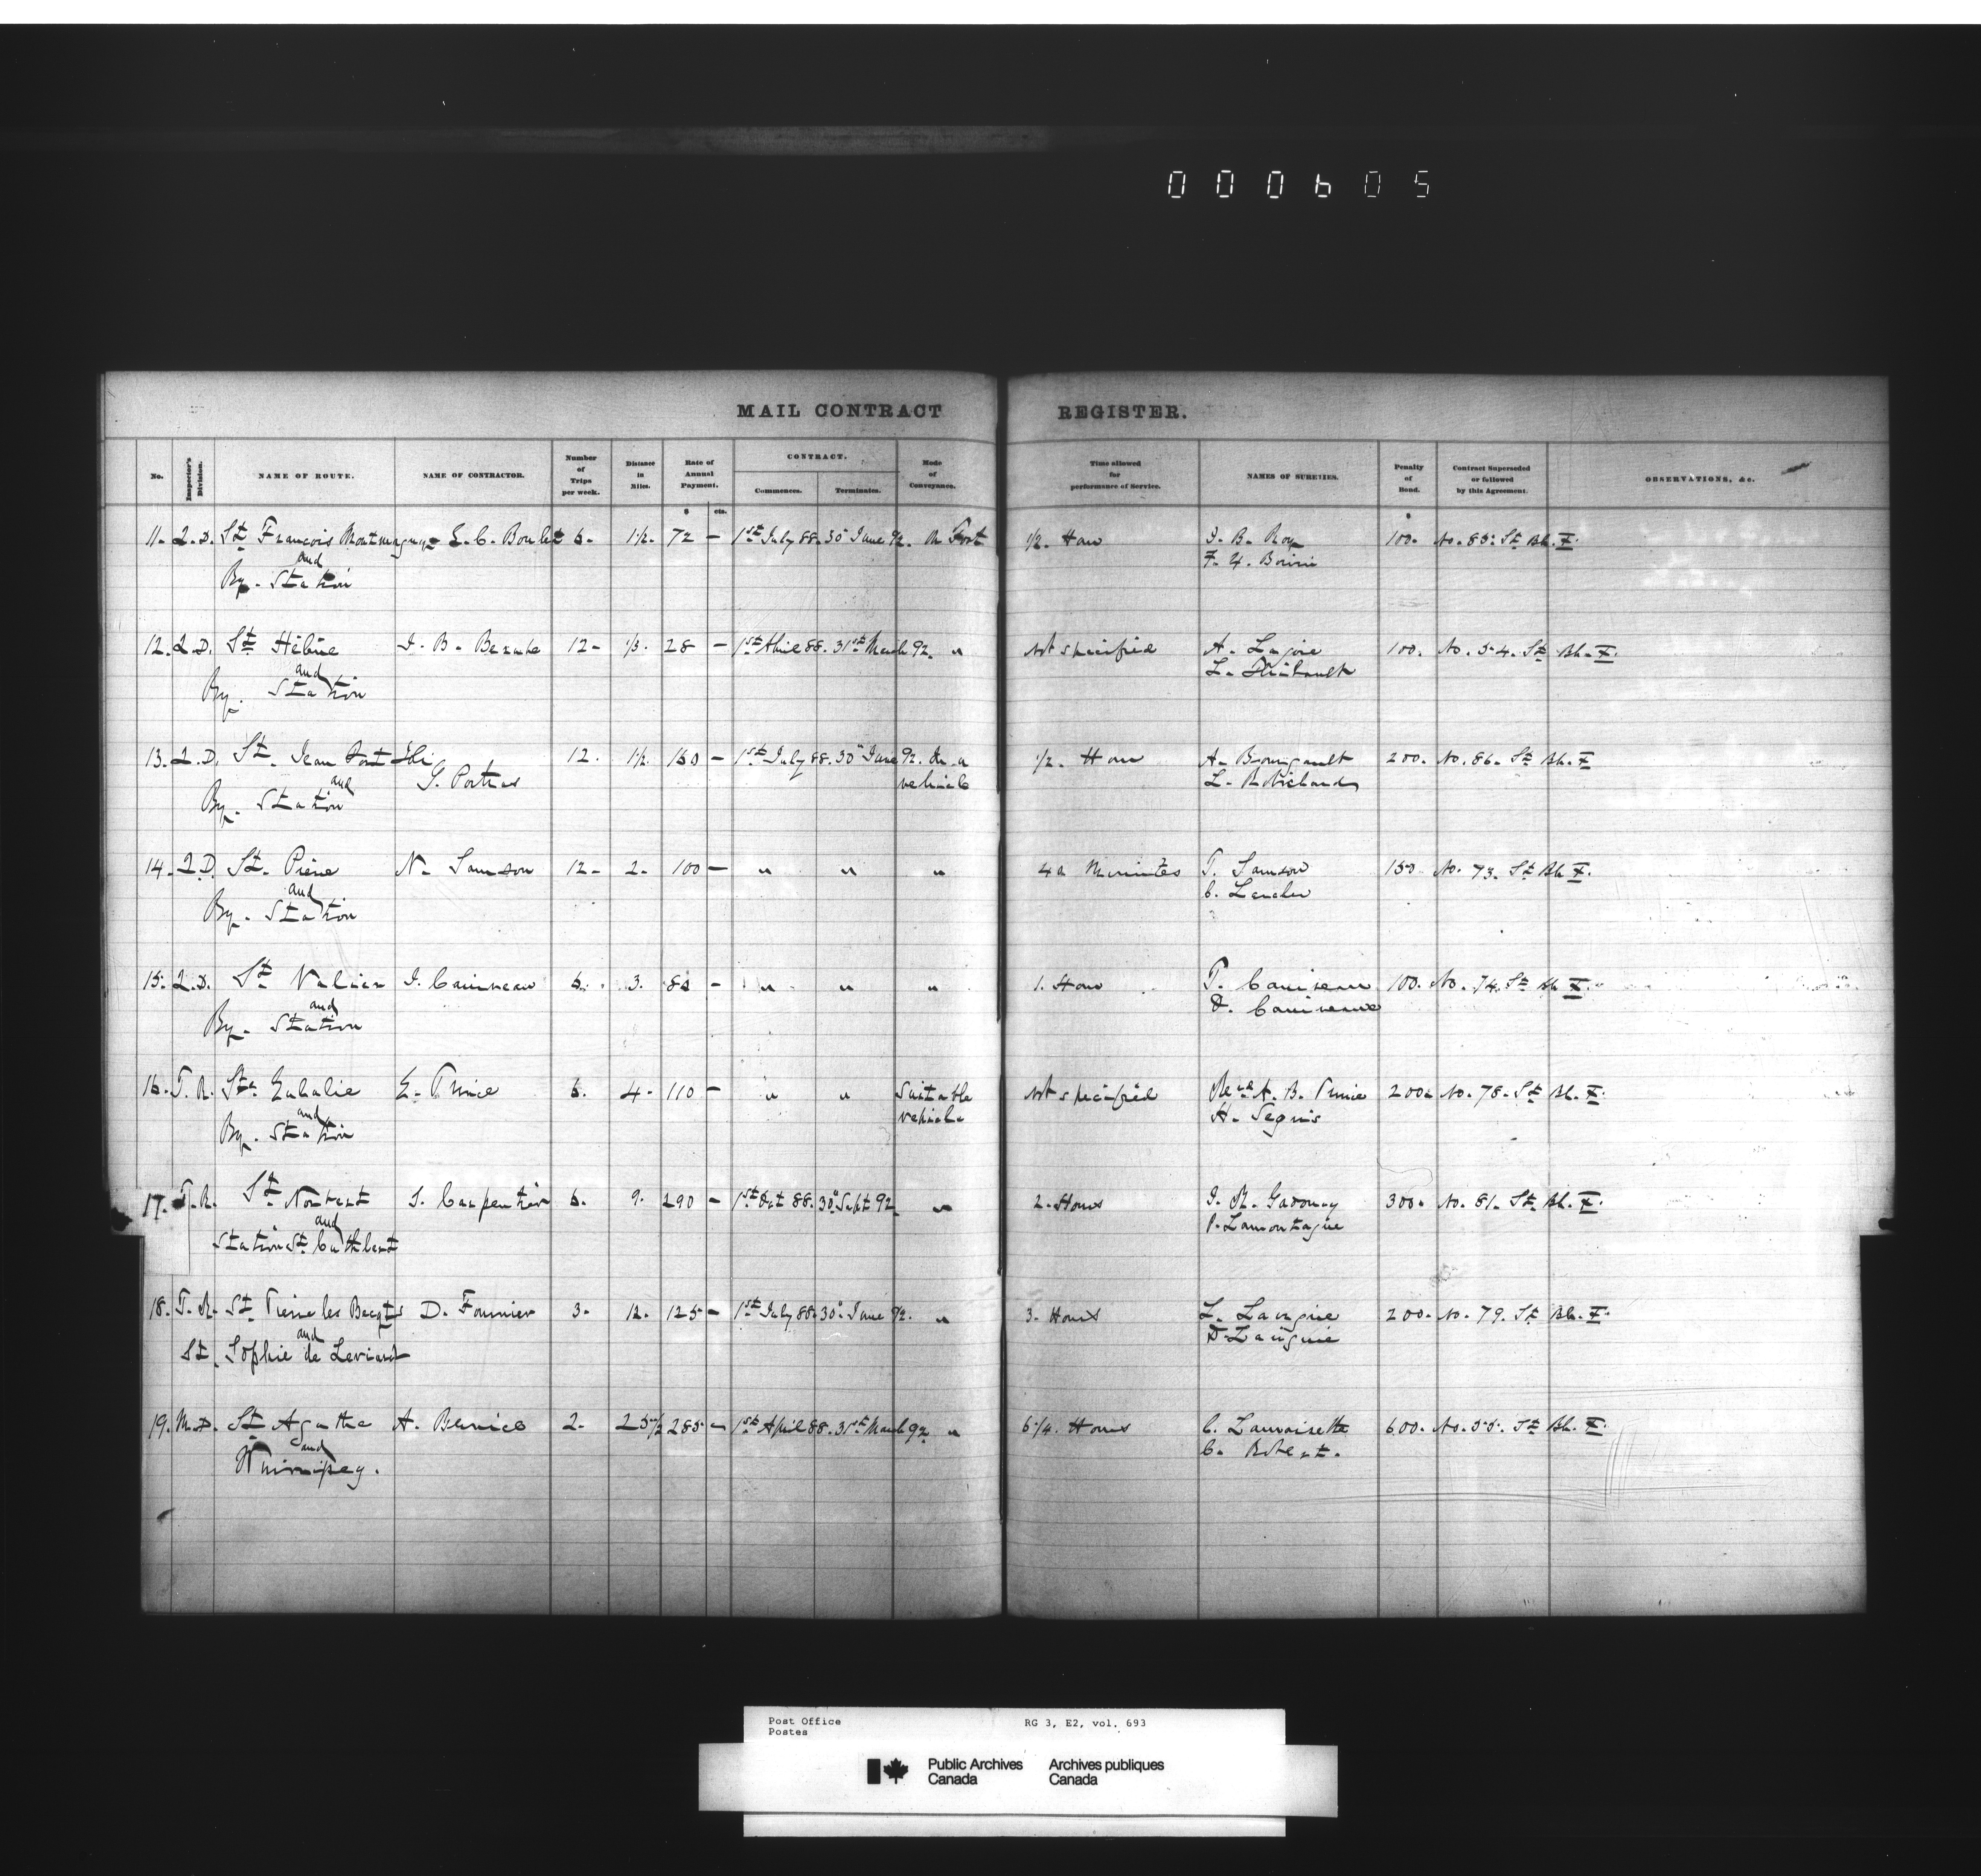 000605
MAIL CONTRACT REGISTER.
No. Inspector's Division. NAME OF ROUTE. NAME OF CONTRACTOR. Number of Trips per week. Distance in Miles. Rate of Annual Payment. CONTRACT. Commences. Terminates. Mode of Conveyance. Time allowed for performance of Service. NAMES OF SURETIES. Penalty of Bond. Contract Superseded or followed by this Agreement. OBSERVATIONS, &c.
$ cts.
11. Q.D. St Francois Montmagny E. C. Boulet 6. 1½. 72 – 1st July 88. 30" June 92. On Foot ½. Hour J. B. Roy 100. No. 85. St Bk. X.
and F. X. Boivin
Ry. Station
12. Q.D. St Hélène J. B. Berube 12 - ⅓. 28 – 1st April 88. 31st March 92. " Not specified A. Lajoie 100. No. 54. St Bk. X.
and L. Thibault
Ry. Station
13. Q.D. St. Jean Port Joli G. Portras 12. 1½. 160 – 1st July 88. 30" June 92. In a vehicle ½. Hour A. Bourgault 200. No. 86. St Bk. X
and L. Robichaud
Ry. Station
14. Q.D. St. Pierre N. Samson 12 - 2. 100 – " " " 40 Minutes T. Samson 150 No. 73. St Bk X.
and
Ry. Station
15. Q.D. St Valier 6. 3. 80 – " " " 1. Hour 100. No. 74. St Bk X.
and
Ry. Station
16. T.R. Ste Eulalie E. Prince 6. 4. 110 – " " Suitable vehicle Not specified Revd A. B. Prince 200. No. 78. St Bk. X.
and H. Seguis
Ry. Station
17. T.R. St Norbert J. Carpentier 6. 9. 290 – 1st Oct 88. 30" Sept 92. " 2. Hours 300. No. 81. St Bk. X.
and P. Lamontagne
Station St. Cuthbert
18. T.R. St Pierre les Becqts D. Fournier 3. 12. 125 – 1st July 88. 30" June 92. " 3. Hours 200. No. 79. St Bk. X.
and
St. Sophie de Levrard
19. M.D. St Agathe 2. 25½ 285 – 1st April 88. 31st March 92 " 6¼. Hours 600. No. 55. St Bk. X.
and
Winnipeg.
Post Office RG 3, E2, vol. 693
Postes
Public Archives Archives publiques
Canada Canada